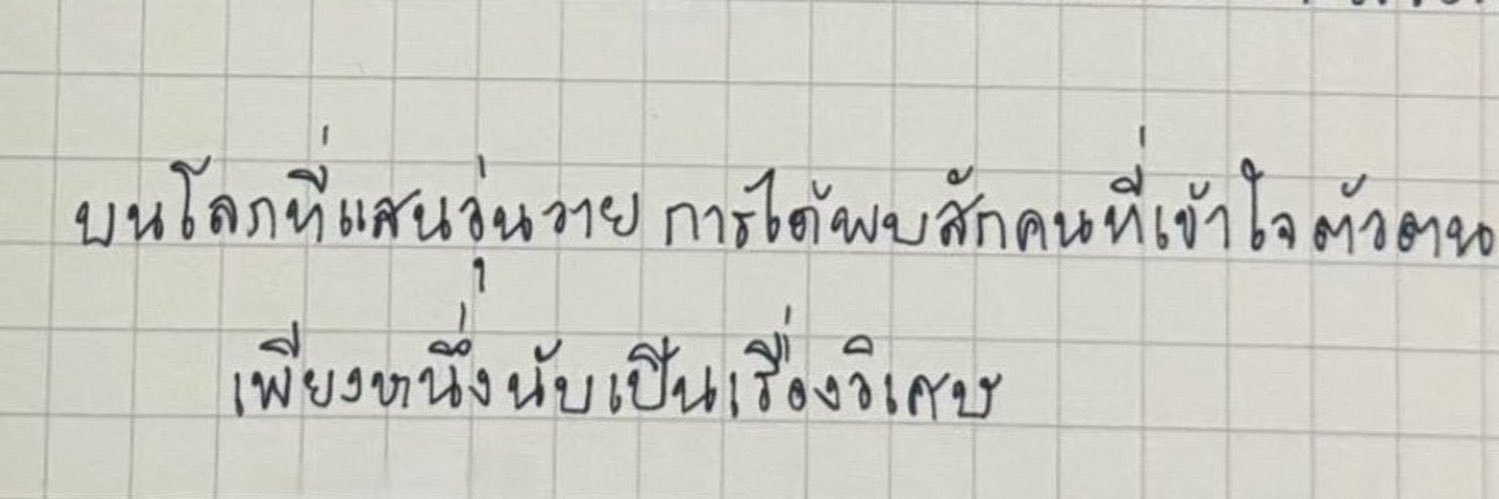 บนโลกที่แสนวุ่นวาย การได้พบสักคนที่เข้าใจตัวตน
เพียงหนึ่งนับเป็นเรื่องวิเศษ